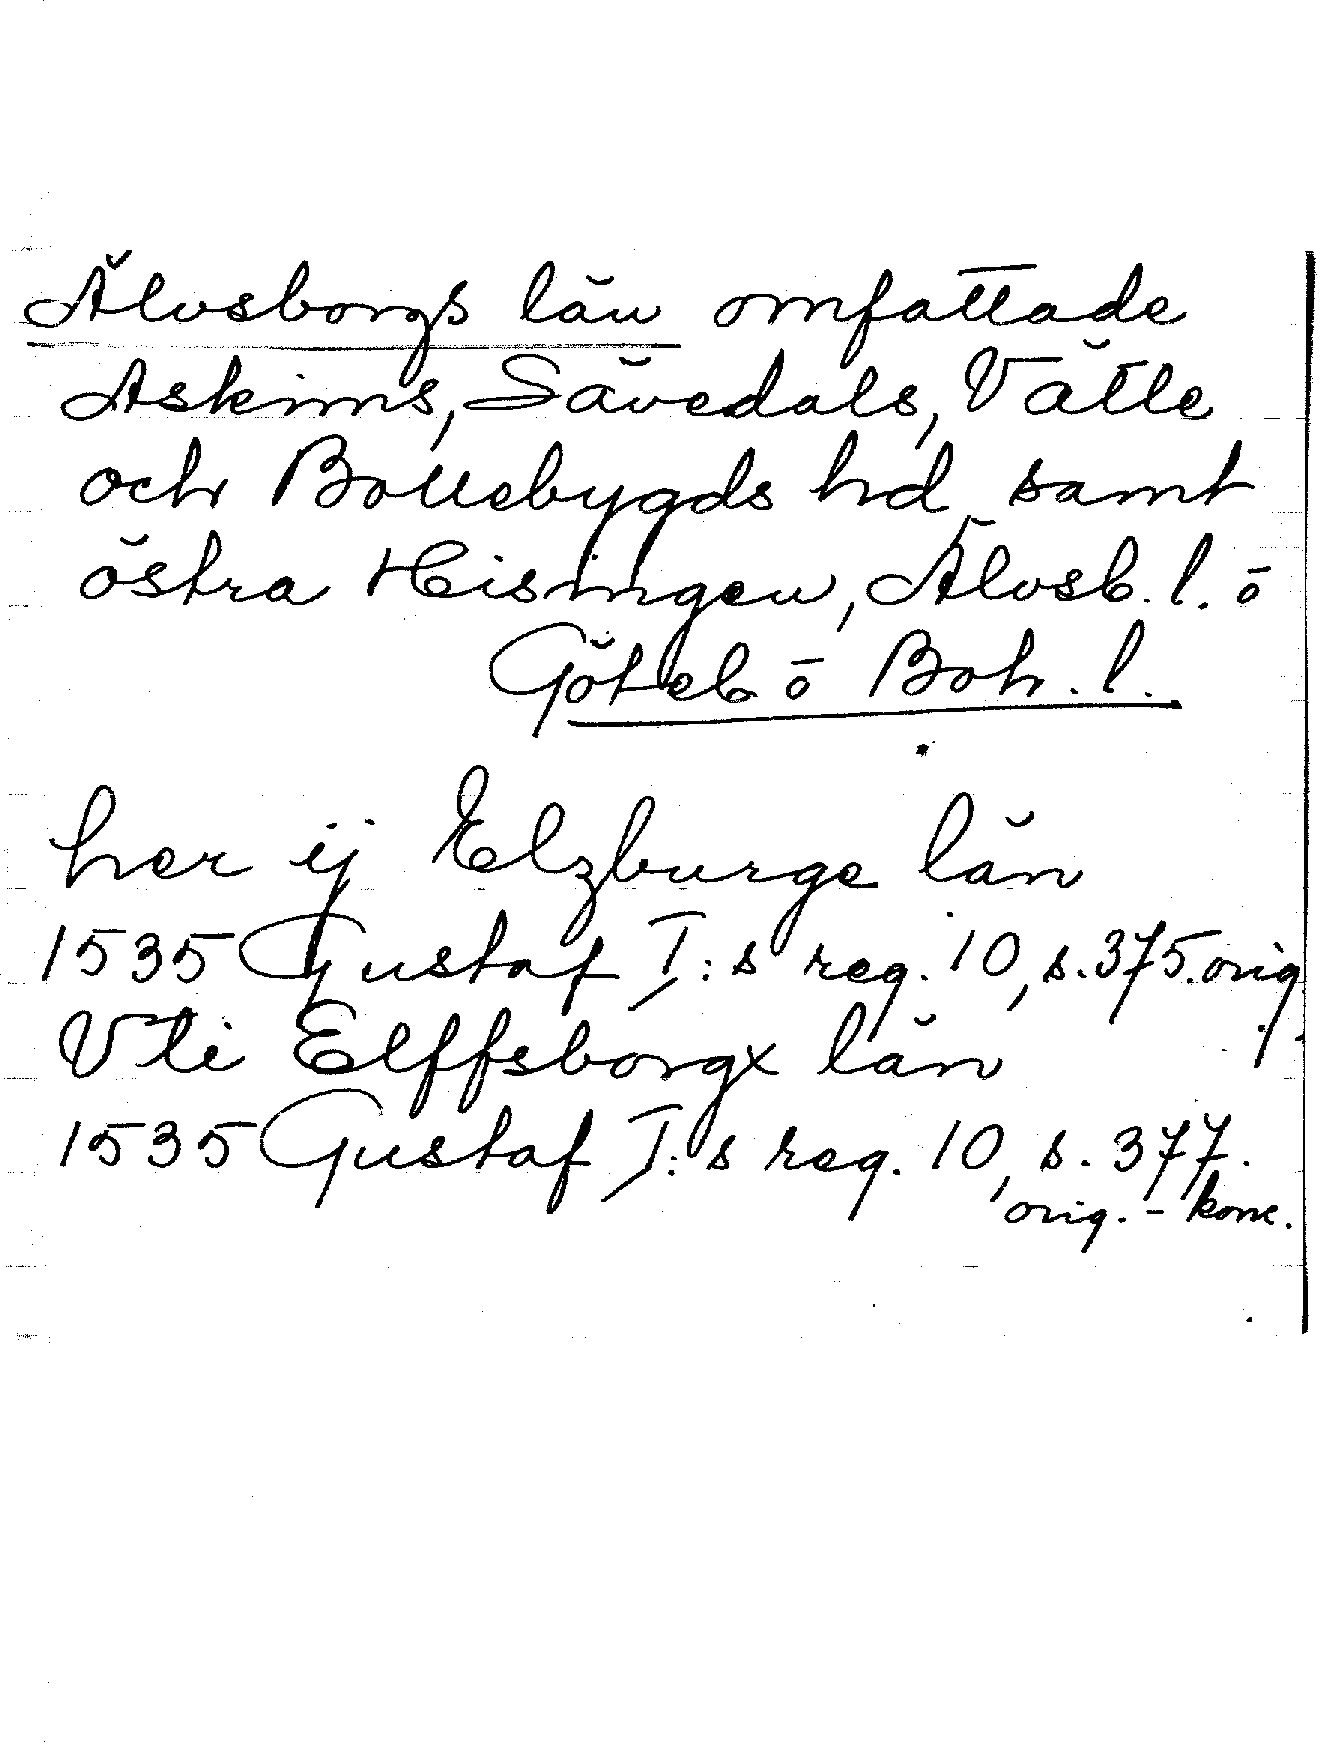 Älvsborgs län omfattade
Askims, Sävedals, Vätle
och Bollebygds hd samt
östra Hisingen, Älvsb. l. o
Göteb o Boh. l.
her ij Elzburge län
1535 Gustaf I:s reg. 10, s. 375. orig.
Vti Elffsborgx län
1535 Gustaf I:s reg. 10, s. 377.
orig. - konc.